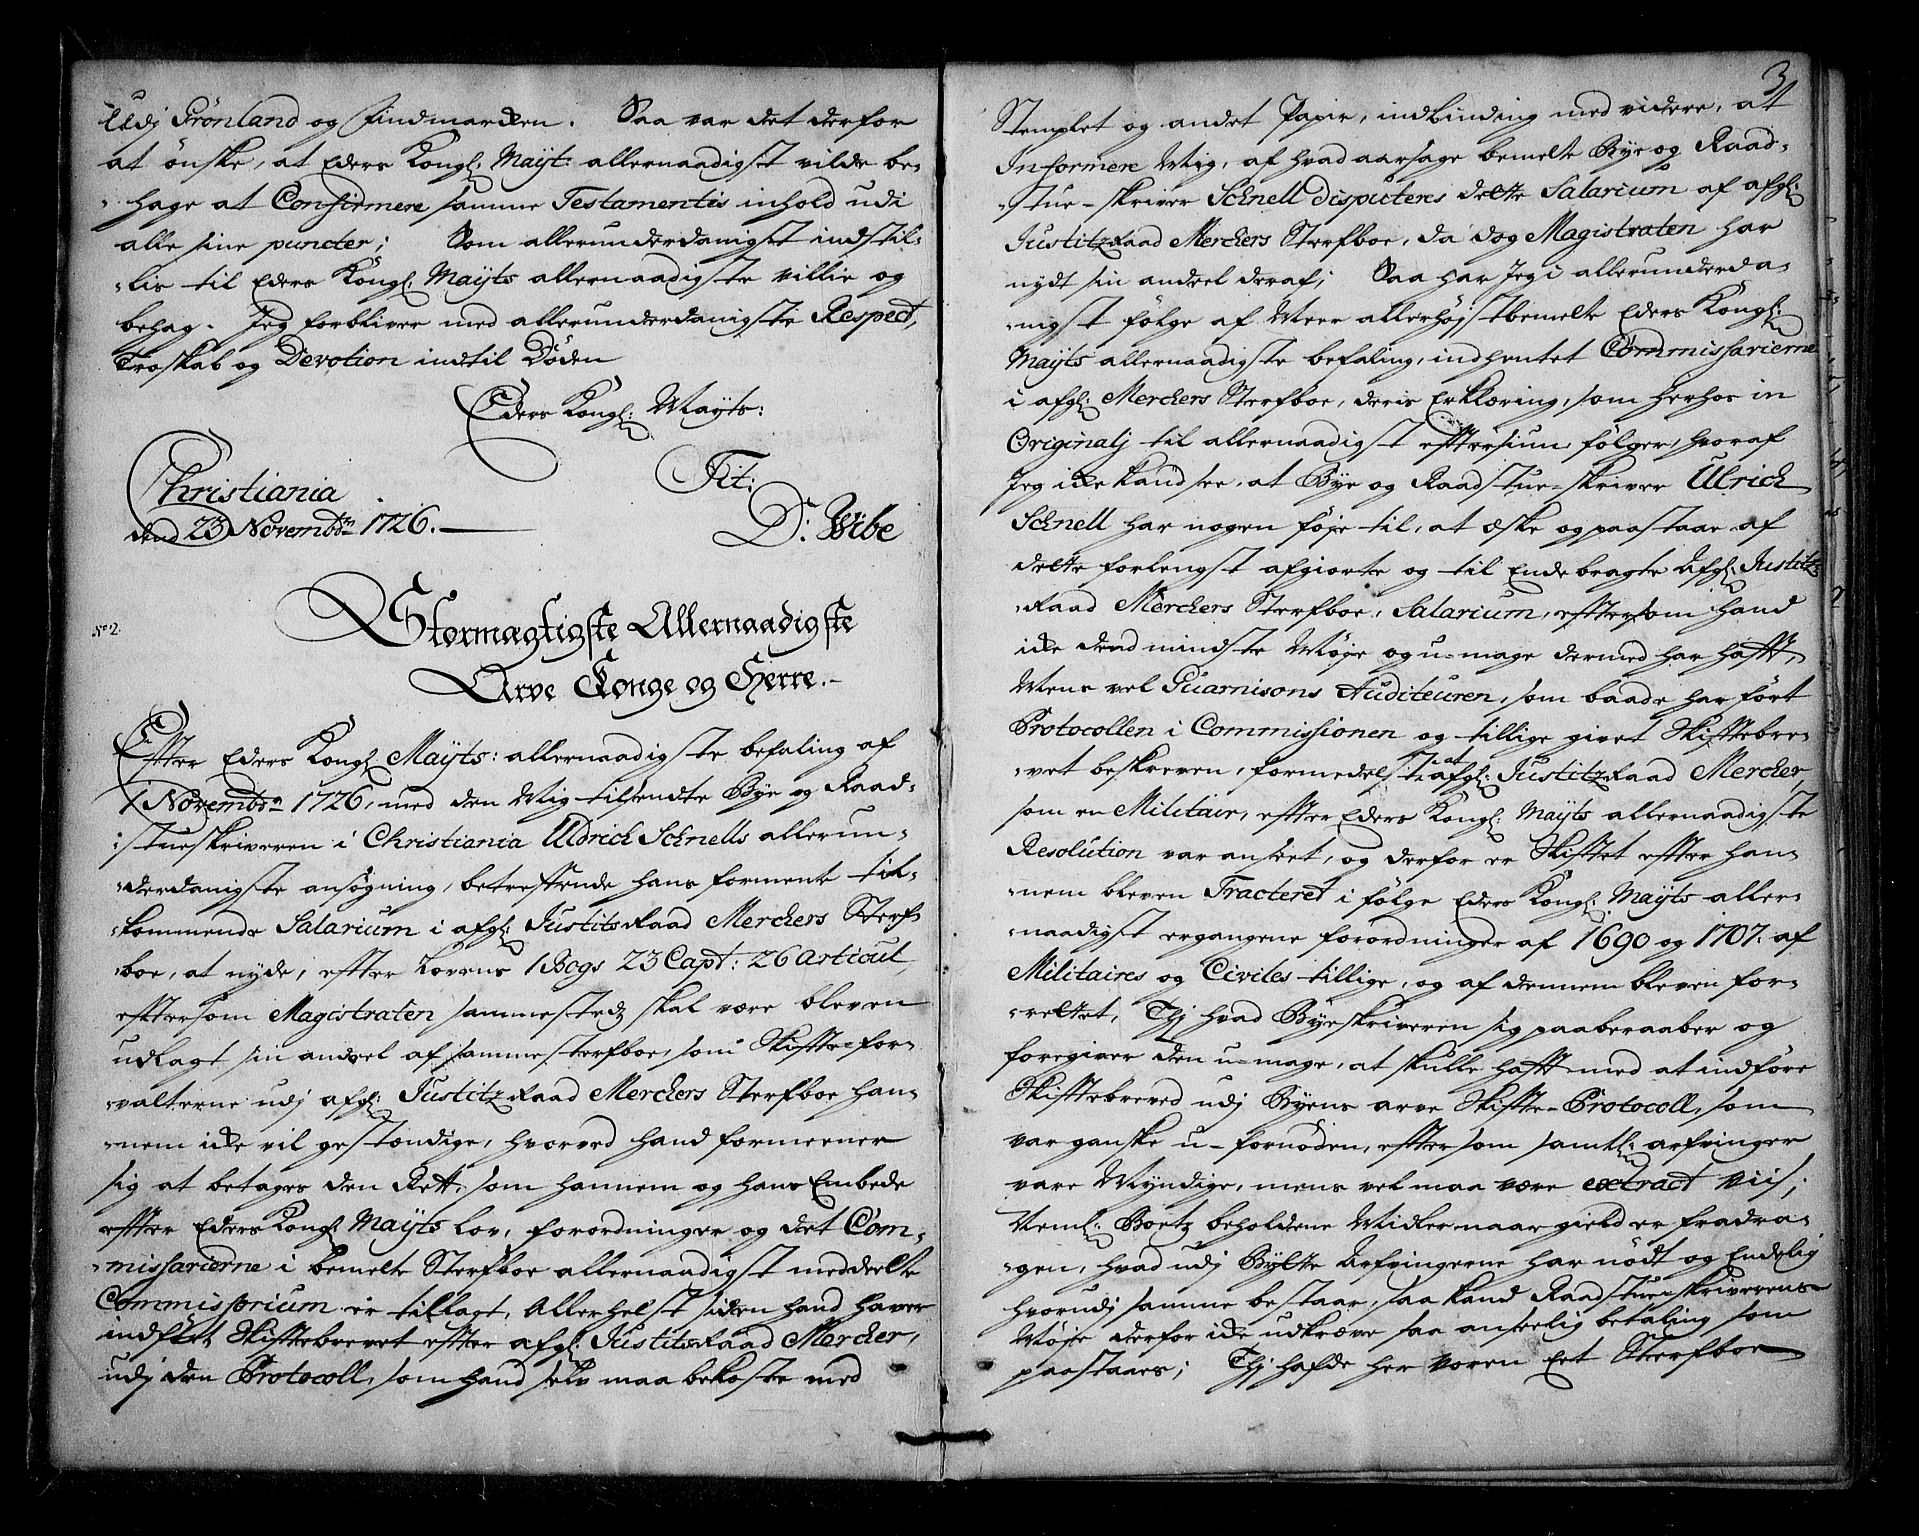 Udj Grönland og Findmarcken. Saa var det derfor
at önske, at Eders Kongl: Mayt: allernaadigst vilde be-
hage at Confirmere samme Testamentis inhold udi
alle sine puncter; Som allerunderdanigst indstil-
lis til Eders Kongl: Mayts allernaadigste villie og
behag. Jeg forbliver med allerunderdanigste Respect,
Troskab og Devotion indtil Döden
Eders Kongl: Mayts:
Christiania Tit:
dend 23 Novembr: 1726. D: Wibe
No 2.
Stormægtigste Allernaadigste
Arve Konge og Herre.
Efter Eders Kongl Mayts: allernaadigste befaling af
1 Novembr 1726, med den Mig tilsendte Bye og Raad-
stueskriveren i Christiania Uldrich Schnells allerun-
derdanigste ansøgning, betreffende hans formente til-
kommende Salarium i afgl: Justits Raad Merchers Sterf-
boe, at nyde, efter Lovens 1 Bogs 23 Capt: 26 Articul,
eftersom Magistraten sammestedz skal være bleven
udlagt sin andeel af samme sterfboe, som Skifte-for-
valterne udj afgl: Justitz Raad Merchers Sterfboe han-
nem icke vil gestændige, hvorved hand formeener
sig at betages den Rett, som hannem og hans Embede
efter Eders Kongl Mayts Lov, forordninger og det Com-
missarierne i bemelte Sterfboe allernaadigst meddeelte
Commissorium er tillagt, Allerhelst siden hand haver
indført Skiftebrevet efter afgl: Justits Raad Mercher,
udj den Protocoll, som hand selv maa bekoste med
3
Stemplet og andet Papir, indbinding med videre, at
Informere Mig, af hvad aarsage bemelte Bye og Raad-
stue-skriver Schnell disputeres dette Salarium af afgl:
Justitz Raad Merchers Sterfboe, da dog Magistraten har
nydt sin andeel deraf; Saa har Jeg i allerunderda-
nigst fölge af Meer allerhöjstbemelte Eders Kongl:
Mayts allernaadigste befaling, indhentet Commissarierne
i afgl: Merchers Sterfboe, deris Erklæring, som herhos in
Originalj til allernaadigst eftersiun fölger, hvoraf
Jeg icke kand see, at Bye og Raadstue-skriver Ulrich
Schnell har nogen föje til, at æske og paastaae af
dette forlengst afgiorte og til Ende bragte Afgl: Justitz
Raad Merchers Sterfboe, Salarium, eftersom hand
icke dend mindste Möje og u-mage dermed har hafft,
Mens vel Guarnisons Auditeuren, som baade har fört
Protocollen i Commissionen og tillige givet Skiftebre-
vet beskreven, formedelst at afgl: Justitz Raad Mercher,
som en Militair, efter Eders Kongl: Mayts allernaadigste
Resolution var anseet, og derfor er Skiftet efter han-
nem bleven Tracteret i fölge Eders Kongl: Mayts aller-
naadigst ergangene forordninger af 1690 og 1707. af
Militaires og Civiles tillige, og af dennem bleven for-
rettet, Thj hvad Byeskriveren sig paaberaaber og
foregiver den u-mage, at skulle hafft med at indföre
Skiftebreved udj Byens arve Skifte-Protocoll, som
var ganske u-fornöden, eftersom samtl: arfvinger
vare Myndige, mens vel maa være extract viis;
Neml: Boetz beholdene Midler naar gield er fradra-
gen, hvad udj Bytte Arfvingerne har nödt og Endelig
hvorudj samme bestaar, saa kand Raadstue-skriverens
Möje derfor icke udkræve saa anseelig betaling som
paastaaes; Thj hafde her været Eet Sterfboe